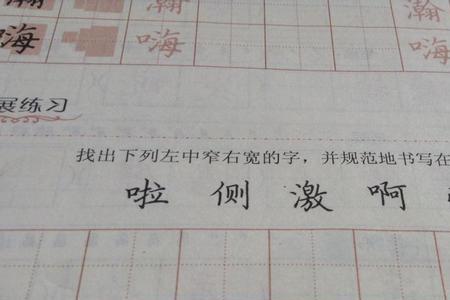 瀚 瀚
嗨 嗨
展练习
找出下列左中窄右宽的字，并规范地书写在
啦 侧 激 啊